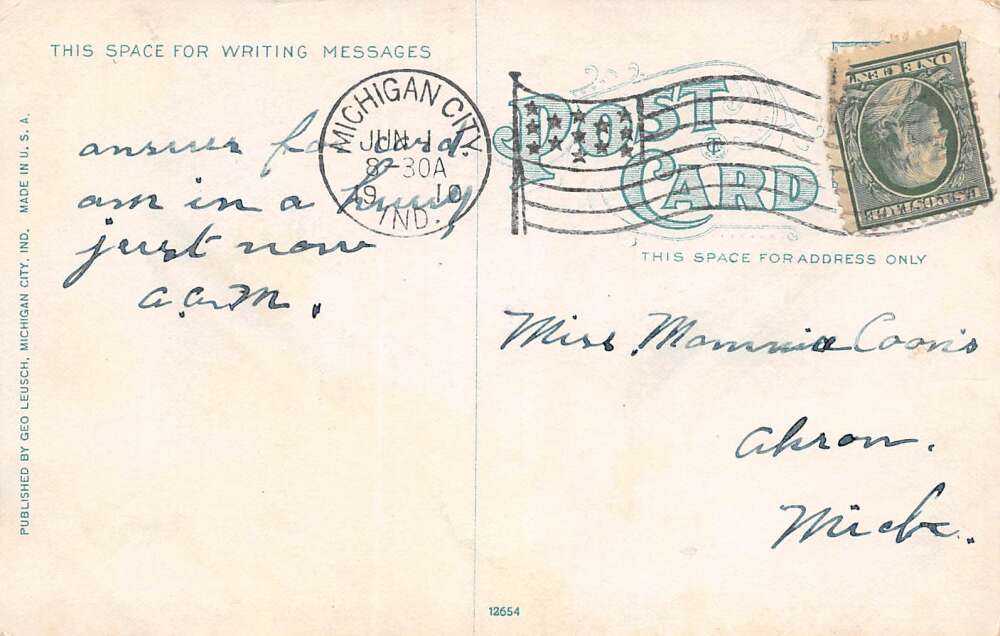 THIS SPACE FOR WRITING MESSAGES
answer for card
am in a hurry
just now
a.a.M.
PUBLISHED BY GEO LEUSCH, MICHIGAN CITY, IND. MADE IN U. S. A.
MICHIGAN CITY.
JUN 1
8-30A
19 10
IND.
POST CARD
ONE CENT
U.S. POSTAGE
THIS SPACE FOR ADDRESS ONLY
Miss Mommie Coons
Akron.
Mich.
12654